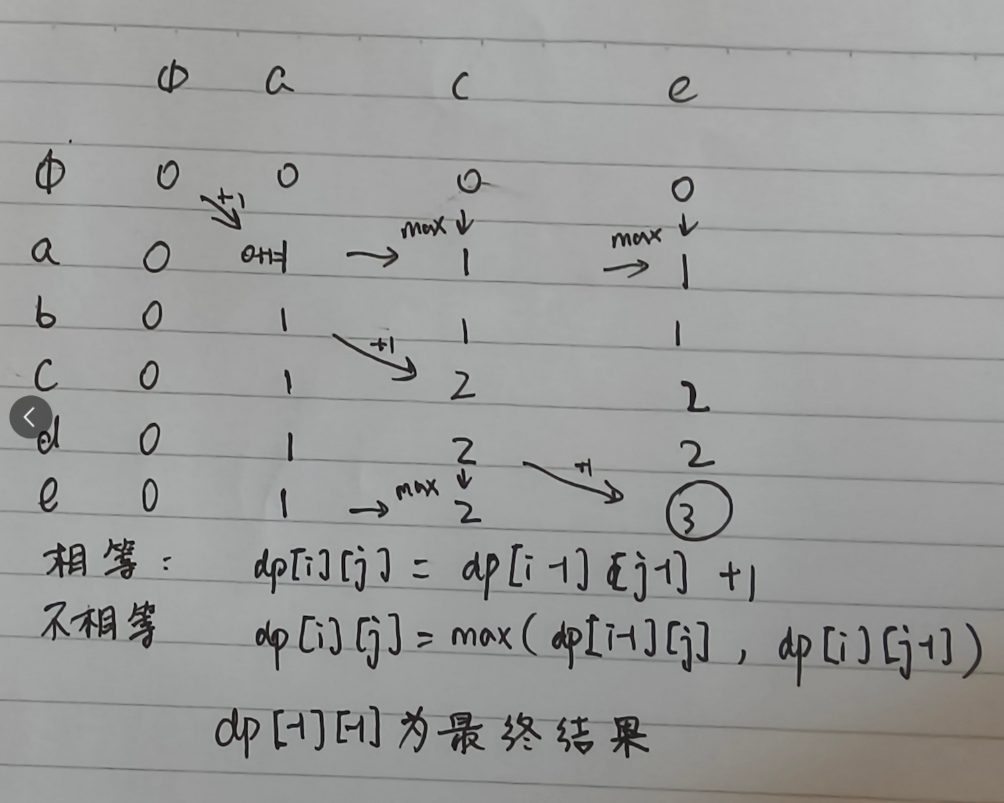 Φ a c e
Φ 0 0 0 0
+1
max max
a 0 0+1=1 → 1 → 1
b 0 1 1 1
+1
c 0 1 2 2
d 0 1 2 2
+1
max
e 0 1 → 2 3
相等: dp[i][j] = dp[i-1][j-1] +1
不相等 dp[i][j] = max(dp[i-1][j], dp[i][j-1])
dp[-1][-1]为最终结果